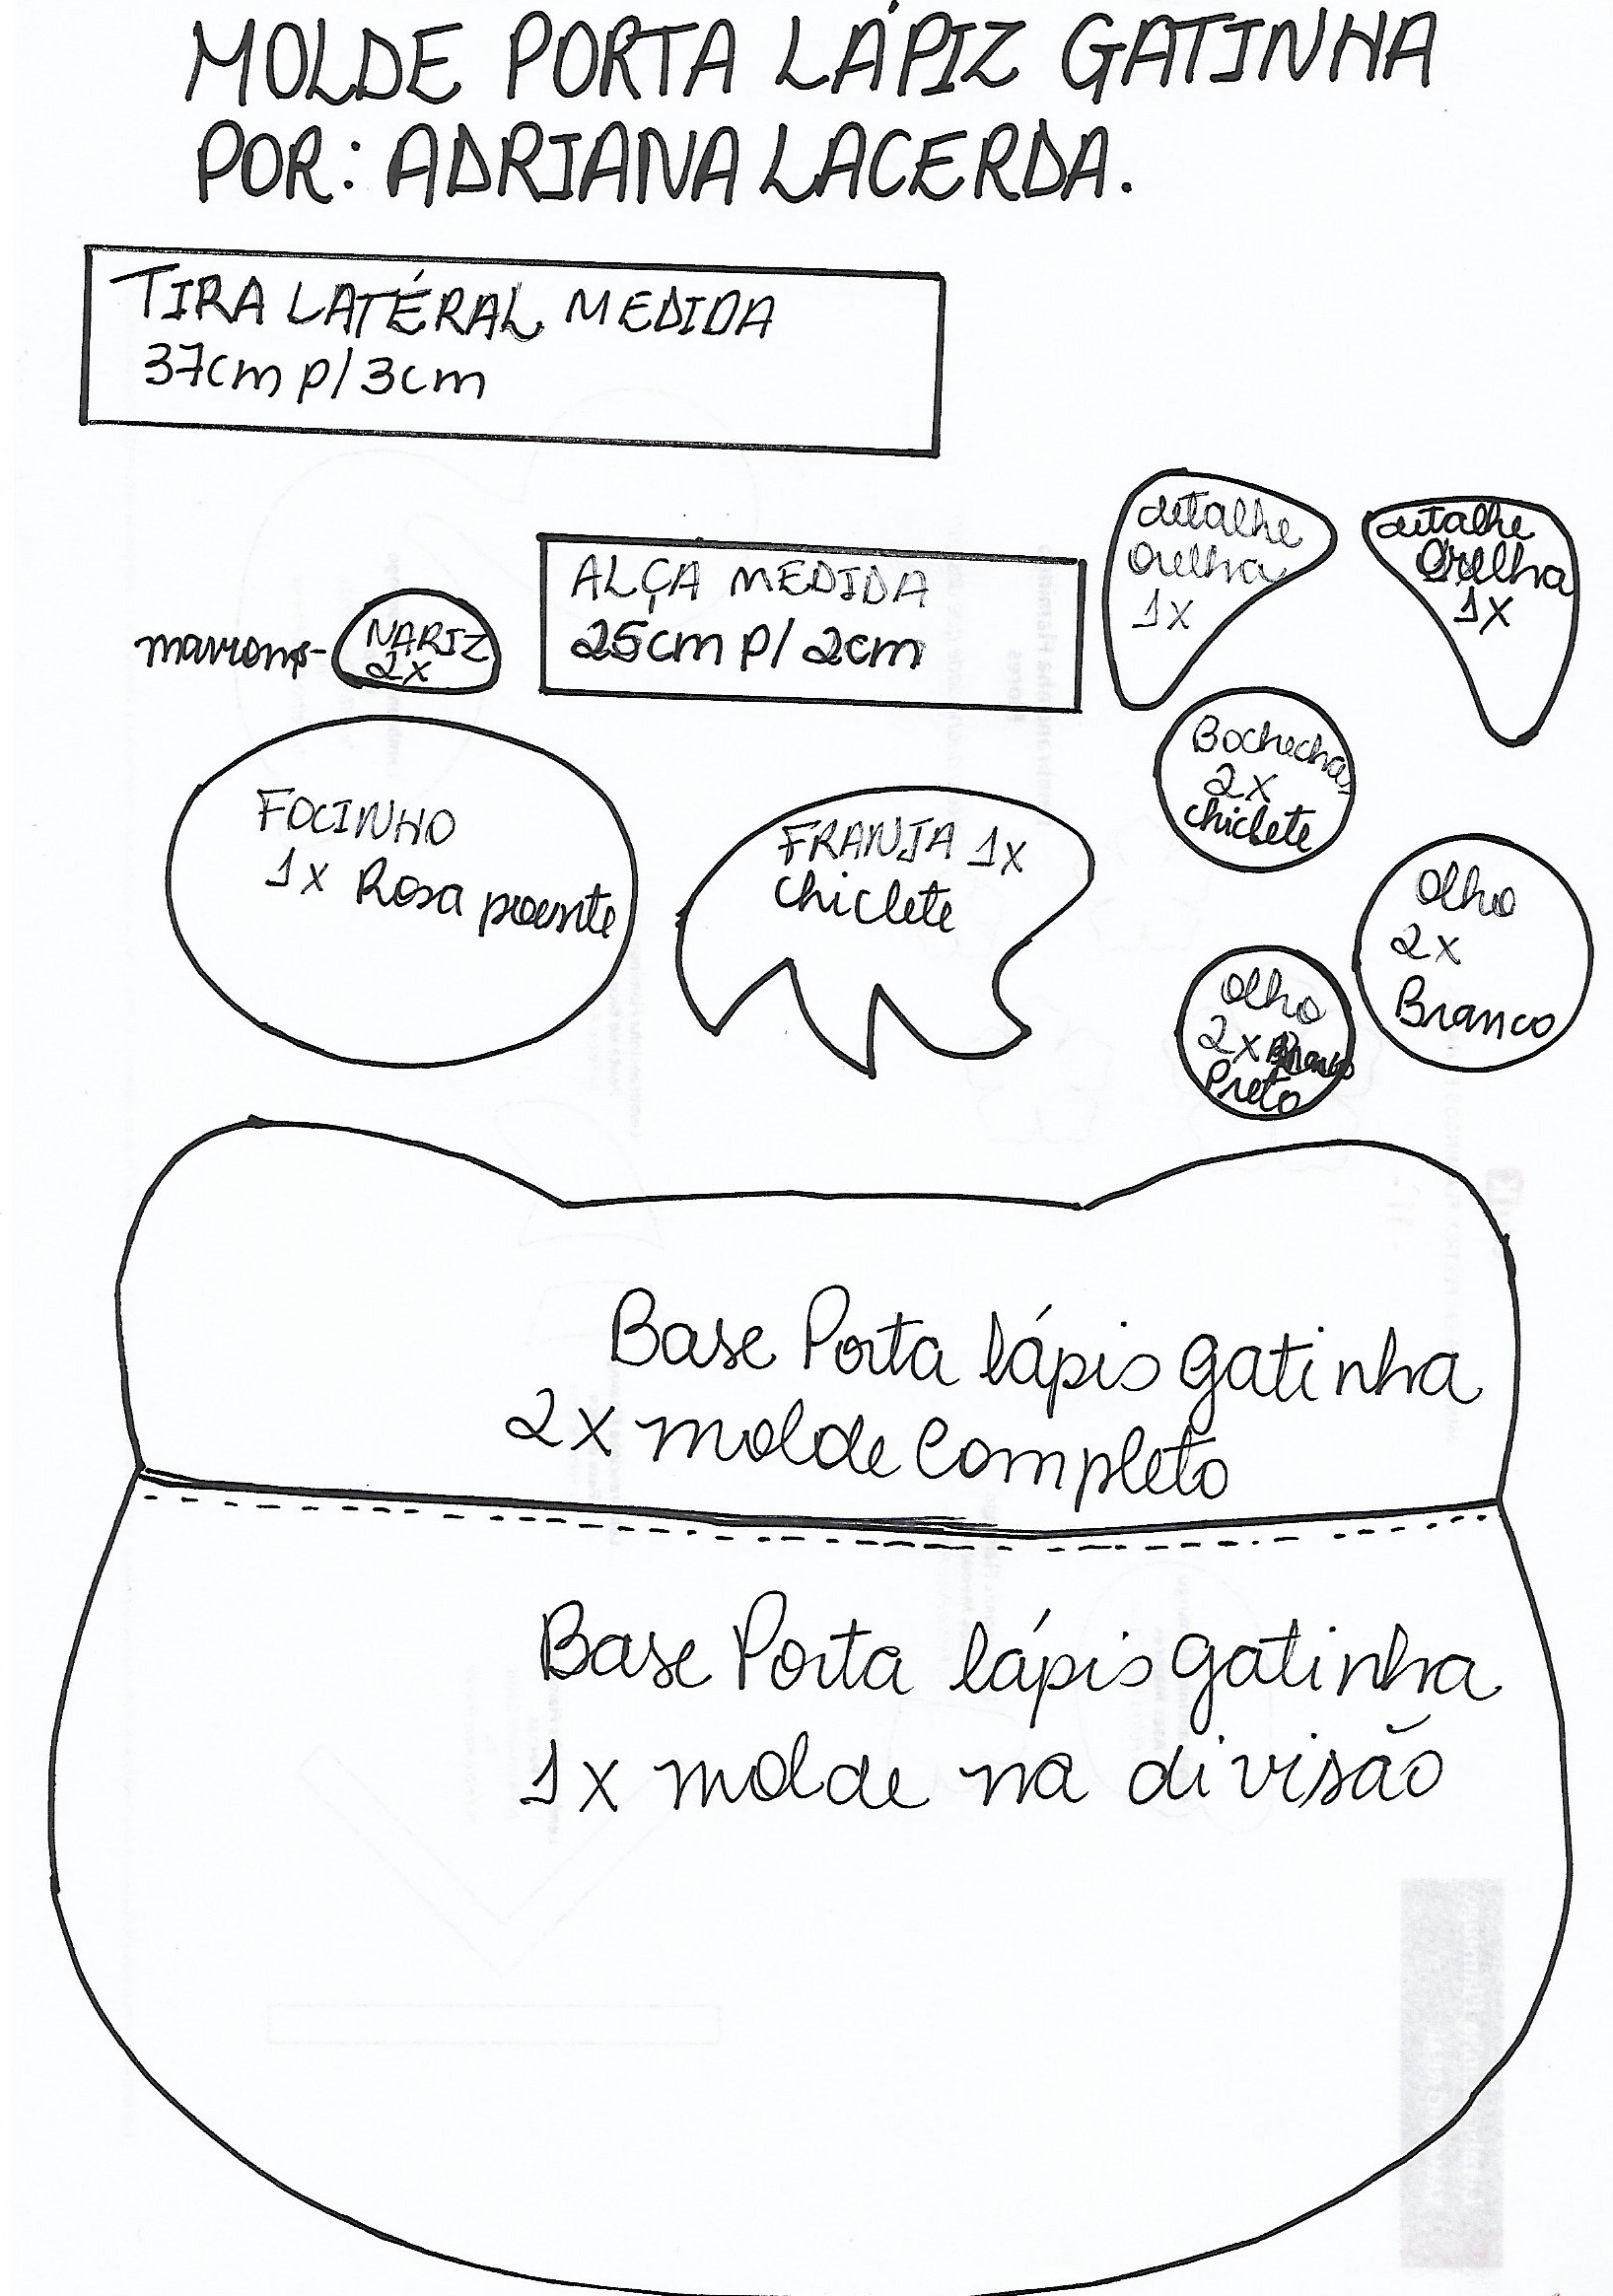 MOLDE PORTA LÁPIZ GATINHA
POR: ADRIANA LACERDA.
TIRA LATÉRAL MEDIDA
37cm p/ 3cm
detalhe
orelha
1x
detalhe
orelha
1x
ALÇA MEDIDA
25cm p/ 2cm
NARIZ
2x
Bochechas
2x
chiclete
FOCINHO
1x Rosa poente
FRANJA 1x
chiclete
olho
2x
Branco
olho
2x
Preto
Base Porta lápis gatinha
2x molde completo
Base Porta lápis gatinha
1x molde na divisão